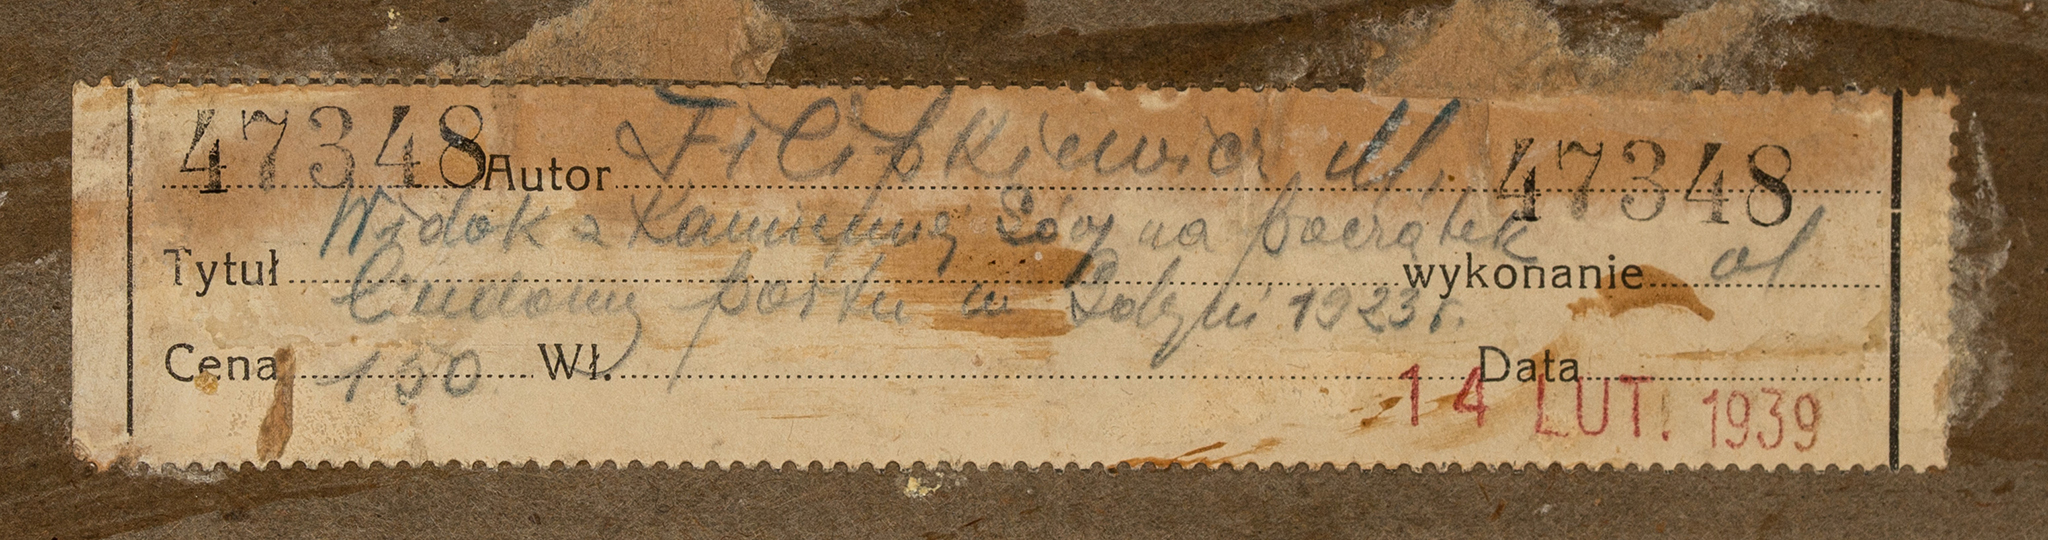 47348 Autor Filipkiewicz M. 47348
Widok z Kamiennej Góry na początek
Tytuł wykonanie ol
budowy portu w Gdyni 1923 r.
Cena 150 Wł. Data
14 LUT. 1939